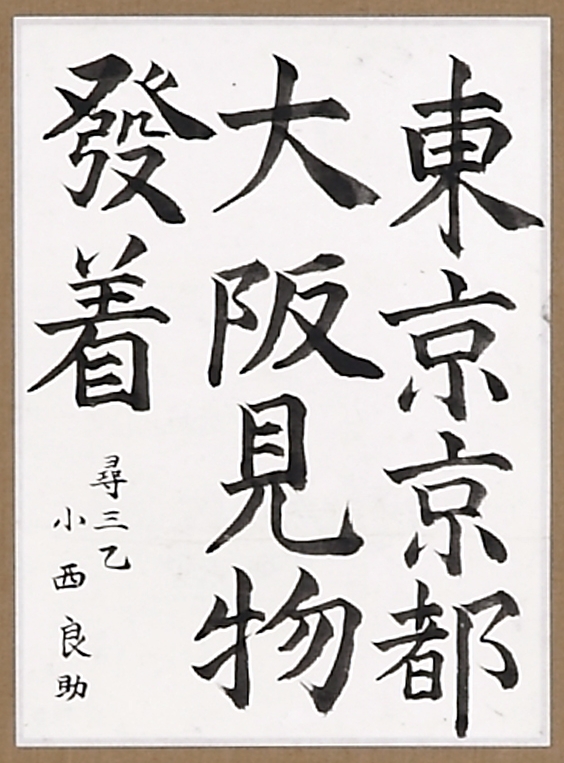 東京京都
大阪見物
發着
尋三乙
小西良助